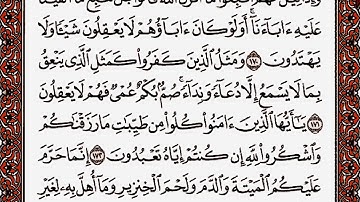 وَإِذَا قِيلَ لَهُمُ ٱتَّبِعُوا۟ مَآ أَنزَلَ ٱللَّهُ قَالُوا۟ بَلْ نَتَّبِعُ مَآ أَلْفَيْنَا
عَلَيْهِ ءَابَآءَنَآ أَوَلَوْ كَانَ ءَابَآؤُهُمْ لَا يَعْقِلُونَ شَيْـًٔا وَلَا
يَهْتَدُونَ ١٧٠ وَمَثَلُ ٱلَّذِينَ كَفَرُوا۟ كَمَثَلِ ٱلَّذِى يَنْعِقُ
بِمَا لَا يَسْمَعُ إِلَّا دُعَآءً وَنِدَآءً صُمٌّۢ بُكْمٌ عُمْىٌ فَهُمْ لَا يَعْقِلُونَ
١٧١ يَـٰٓأَيُّهَا ٱلَّذِينَ ءَامَنُوا۟ كُلُوا۟ مِن طَيِّبَـٰتِ مَا رَزَقْنَـٰكُمْ
وَٱشْكُرُوا۟ لِلَّهِ إِن كُنتُمْ إِيَّاهُ تَعْبُدُونَ ١٧٢ إِنَّمَا حَرَّمَ
عَلَيْكُمُ ٱلْمَيْتَةَ وَٱلدَّمَ وَلَحْمَ ٱلْخِنزِيرِ وَمَآ أُهِلَّ بِهِۦ لِغَيْرِ